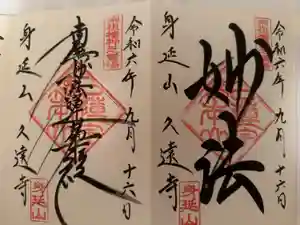 令和六年九月十六日
南無妙法蓮華経
身延山久遠寺
身延山
令和六年九月十六日
妙法
身延山久遠寺
身延山